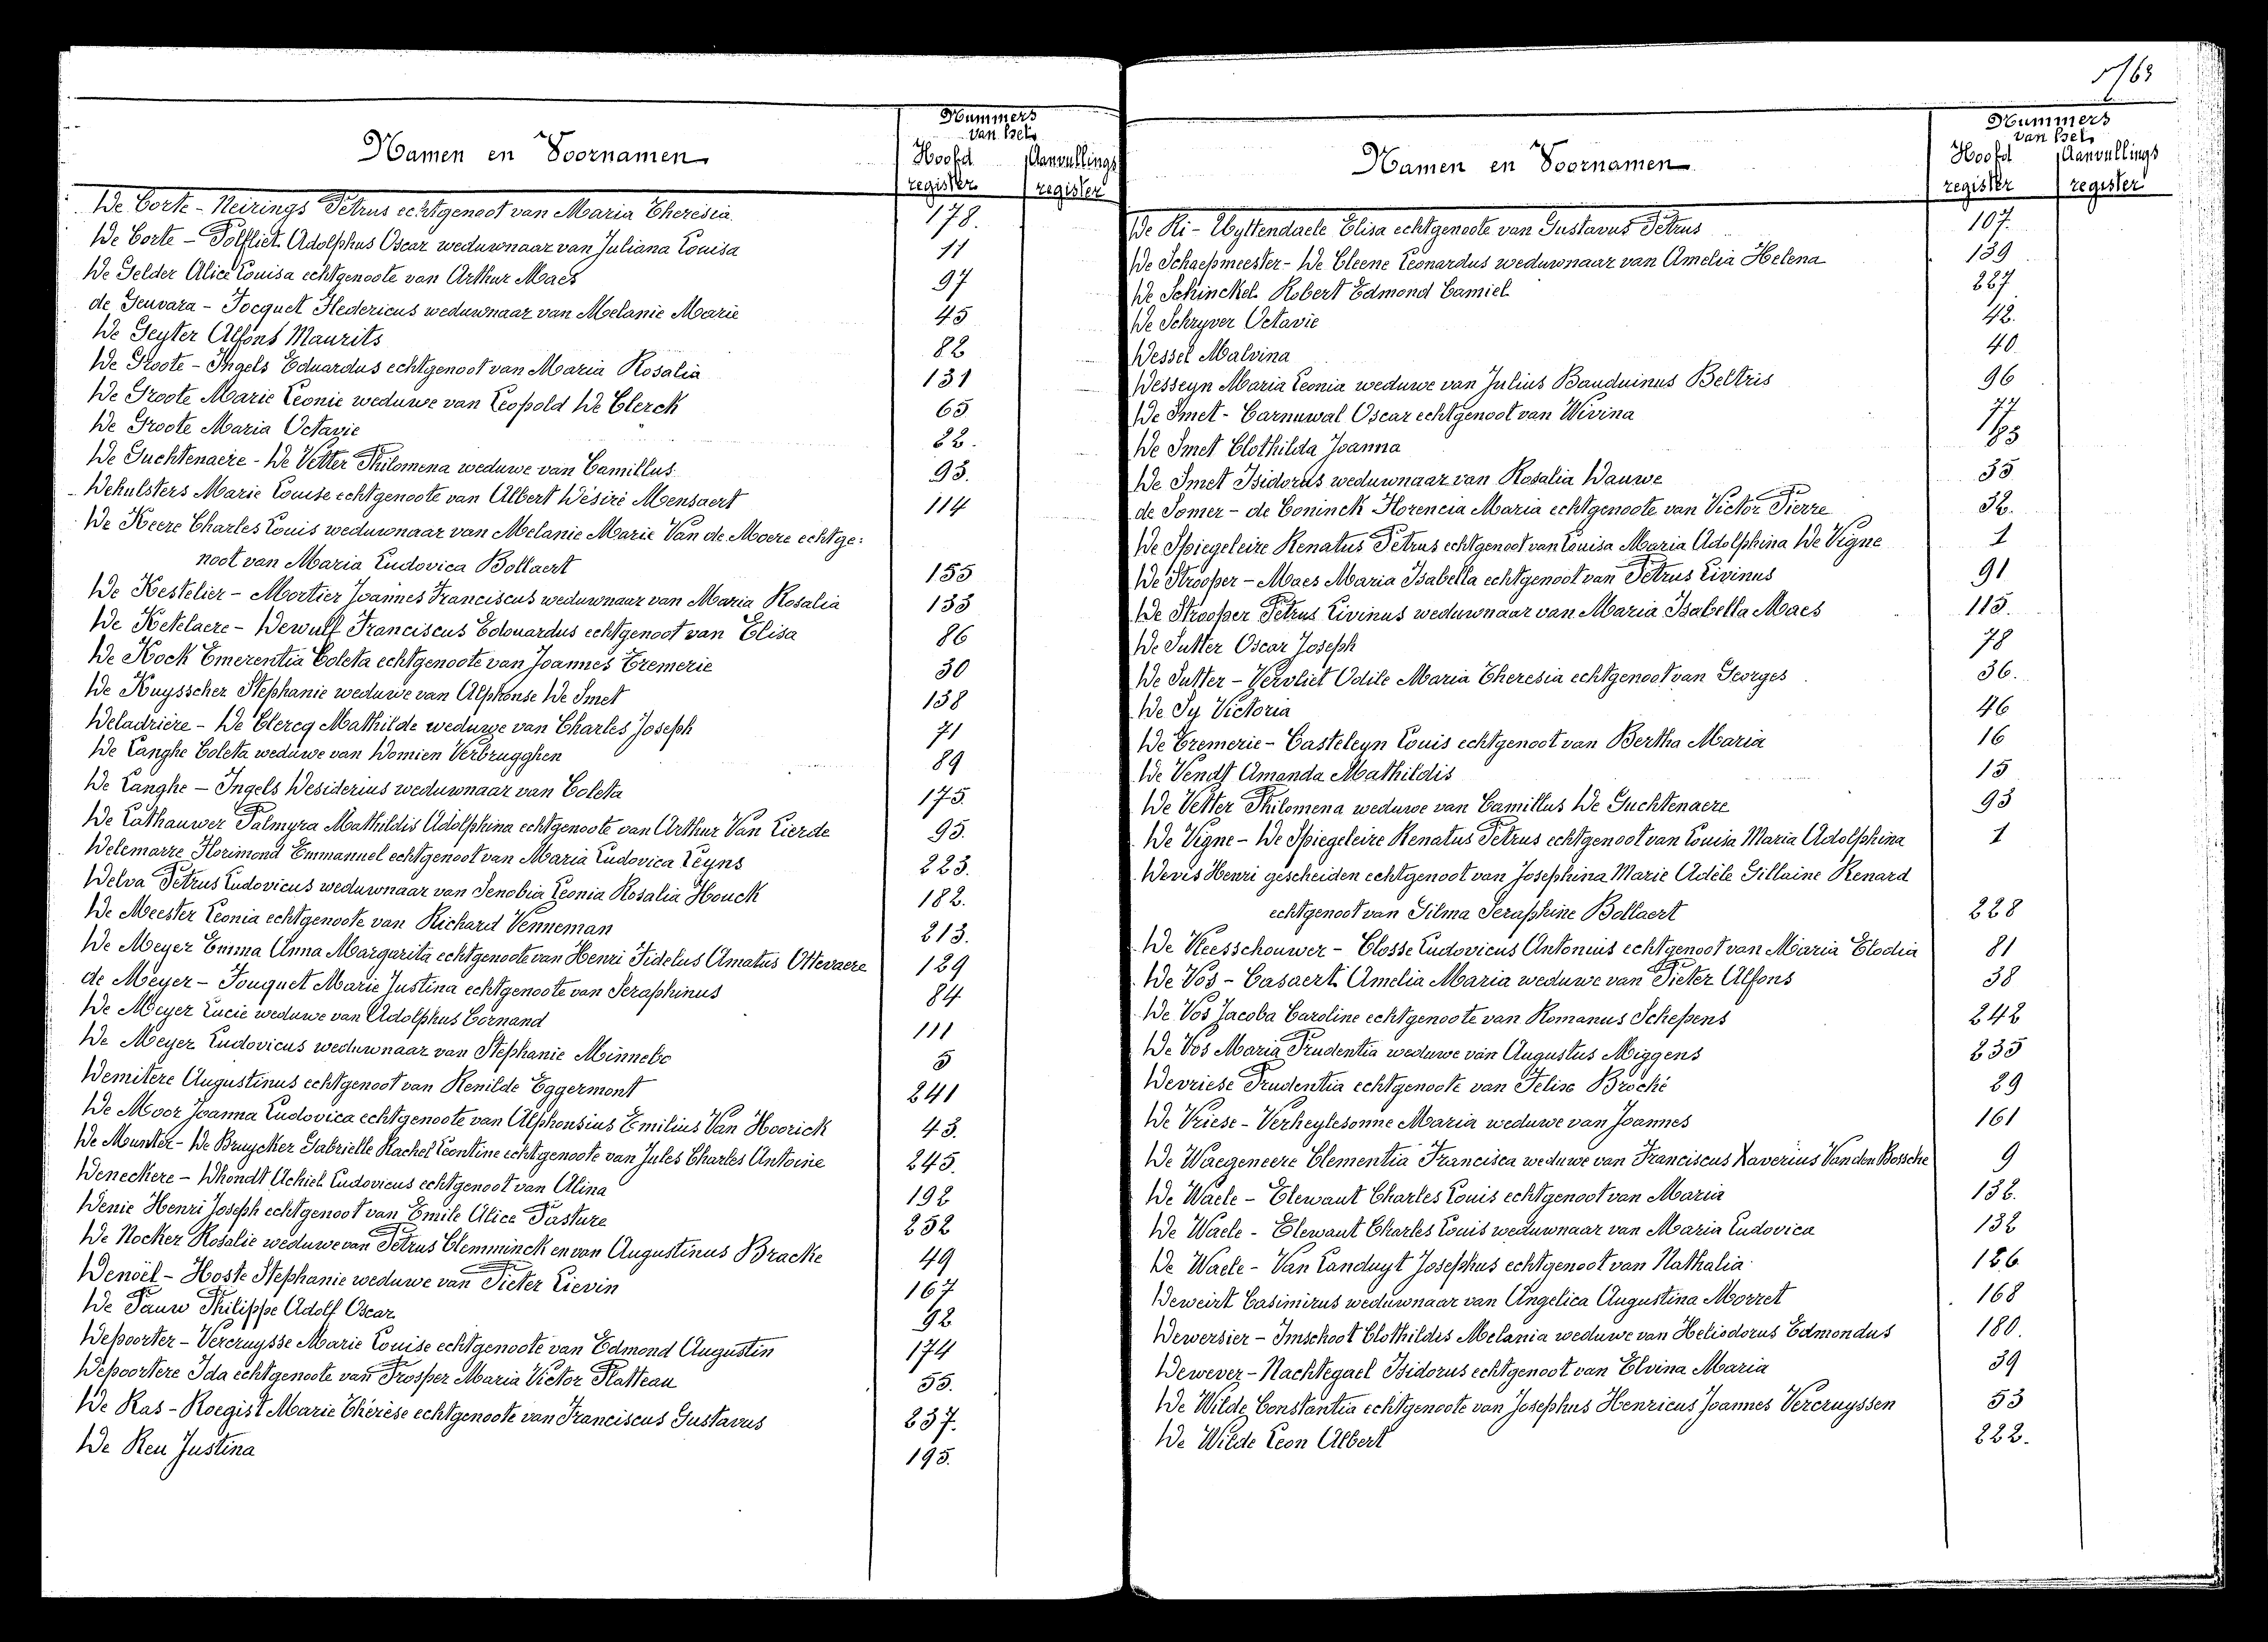 163
Namen en Voornamen
Nummers
van het
Hoofd
register
Aanvullings
register
De Corte - Neirings Petrus echtgenoot van Maria Theresia 178.
De Corte - Polfliet Adolphus Oscar weduwnaar van Juliana Louisa 11
De Gelder Alice Louisa echtgenoote van Arthur Maes 97
de Geuvara - Jocquet Fledericus weduwnaar van Melanie Marie 45
De Geyter Alfons Maurits 82
De Groote - Ingels Eduardus echtgenoot van Maria Rosalia 131
De Groote Marie Leonie weduwe van Leopold De Clerck 65
De Groote Maria Octavie 22.
De Guchtenaere - De Vetter Philomena weduwe van Camillus 93.
Dehulsters Marie Louise echtgenoote van Albert Désiré Mensaert 114
De Keere Charles Louis weduwnaar van Melanie Marie Van de Moere echtge:
noot van Maria Ludovica Bollaert 155
De Kestelier - Mortier Joannes Franciscus weduwnaar van Maria Rosalia 133
De Ketelaere - Dewulf Franciscus Edouardus echtgenoot van Elisa 86
De Kock Emerentia Coleta echtgenoote van Joannes Tremerie 30
De Kuysscher Stephanie weduwe van Alphonse De Smet 138
Deladrière - De Clercq Mathilde weduwe van Charles Joseph 71
De Langhe Coleta weduwe van Domien Verbrugghen 89
De Langhe - Ingels Desiderius weduwnaar van Coleta 175.
De Lathauwer Palmyra Mathildis Adolphina echtgenoote van Arthur Van Lierde 95.
Delemarre Florimond Emmanuel echtgenoot van Maria Ludovica Leyns 223.
Delva Petrus Ludovicus weduwnaar van Senobia Leonia Rosalia Houck 182.
De Meester Leonia echtgenoote van Richard Venneman 213.
De Meyer Emma Anna Margarita echtgenoote van Henri Fidelus Amatus Ottevaere 129
de Meyer - Fouquet Marie Justina echtgenoote van Seraphinus 84
De Meyer Lucie weduwe van Adolphus Cornand 111
De Meyer Ludovicus weduwnaar van Stephanie Minnebo 5
Demitere Augustinus echtgenoot van Renilde Eggermont 241
De Moor Joanna Ludovica echtgenoote van Alphonsius Emilius Van Hoorick 43.
De Munter - De Bruycker Gabrielle Rachel Leontine echtgenoote van Jules Charles Antoine 245.
Deneckere - Dhondt Achiel Ludovicus echtgenoot van Alina 192
Denie Henri Joseph echtgenoot van Emile Alice Pasture 252
De Nocker Rosalie weduwe van Petrus Clemminck en van Augustinus Bracke 49
Denoël - Hoste Stephanie weduwe van Pieter Lievin 167
De Pauw Philippe Adolf Oscar 92
Depoorter - Vercruysse Marie Louise echtgenoote van Edmond Augustin 174
Depoortere Ida echtgenoote van Prosper Maria Victor Platteau 55.
De Ras - Roegist Marie Thérèse echtgenoote van Franciscus Gustavus 237.
De Reu Justina 195.
Namen en Voornamen
Nummers
van het
Hoofd
register
Aanvullings
register
De Ri - Uyttendaele Elisa echtgenoote van Gustavus Petrus 107.
De Schaepmeester - De Cleene Leonardus weduwnaar van Amelia Helena 139
De Schinckel Robert Edmond Camiel 227
De Schryver Octavie 42.
Dessel Malvina 40
Desseyn Maria Leonia weduwe van Julius Bauduinus Beltris 96
De Smet - Carnuwal Oscar echtgenoot van Wivina 77
De Smet Clothilda Joanna
De Smet Isidorus weduwnaar van Rosalia Dauwe 35
de Somer - de Coninck Florencia Maria echtgenoote van Victor Pierre 32.
De Spiegeleire Renatus Petrus echtgenoot van Louisa Maria Adolphina De Vigne 1
De Strooper - Maes Maria Isabella echtgenoot van Petrus Livinus 91
De Strooper Petrus Livinus weduwnaar van Maria Isabella Maes 115.
De Sutter Oscar Joseph 78
De Sutter - Vervliet Odile Maria Theresia echtgenoot van Georges 36.
De Sy Victoria 46
De Tremerie - Casteleyn Louis echtgenoot van Bertha Maria 16
De Vendt Amanda Mathildis 15
De Vetter Philomena weduwe van Camillus De Guchtenaere 93
De Vigne - De Spiegeleire Renatus Petrus echtgenoot van Louisa Maria Adolphina 1
Devis Henri gescheiden echtgenoot van Josephina Marie Adèle Gillaine Renard
echtgenoot van Silma Seraphine Bollaert 228
De Vleesschouwer - Closse Ludovicus Antonius echtgenoot van Maria Elodia 81
De Vos - Casaert Amelia Maria weduwe van Pieter Alfons 38
De Vos Jacoba Caroline echtgenoote van Romanus Schepens 242
De Vos Maria Prudentia weduwe van Augustus Miggens 235
Devriese Prudentia echtgenoote van Felix Broché 29
De Vriese - Verheylesonne Maria weduwe van Joannes 161
De Waegeneere Clementia Francisca weduwe van Franciscus Xaverius Van den Bossche 9
De Waele - Elewaut Charles Louis echtgenoot van Maria 132.
De Waele - Elewaut Charles Louis weduwnaar van Maria Ludovica 132
De Waele - Van Landuyt Josephus echtgenoot van Nathalia 126
Deweirt Casimirus weduwnaar van Angelica Augustina Morret 168
Dewersier - Imschoot Clothildis Melania weduwe van Heliodorus Edmondus 180.
Dewever - Nachtegael Isidorus echtgenoot van Elvina Maria 39
De Wilde Constantia echtgenoote van Josephus Henricus Joannes Vercruyssen 53
De Wilde Leon Albert 222.